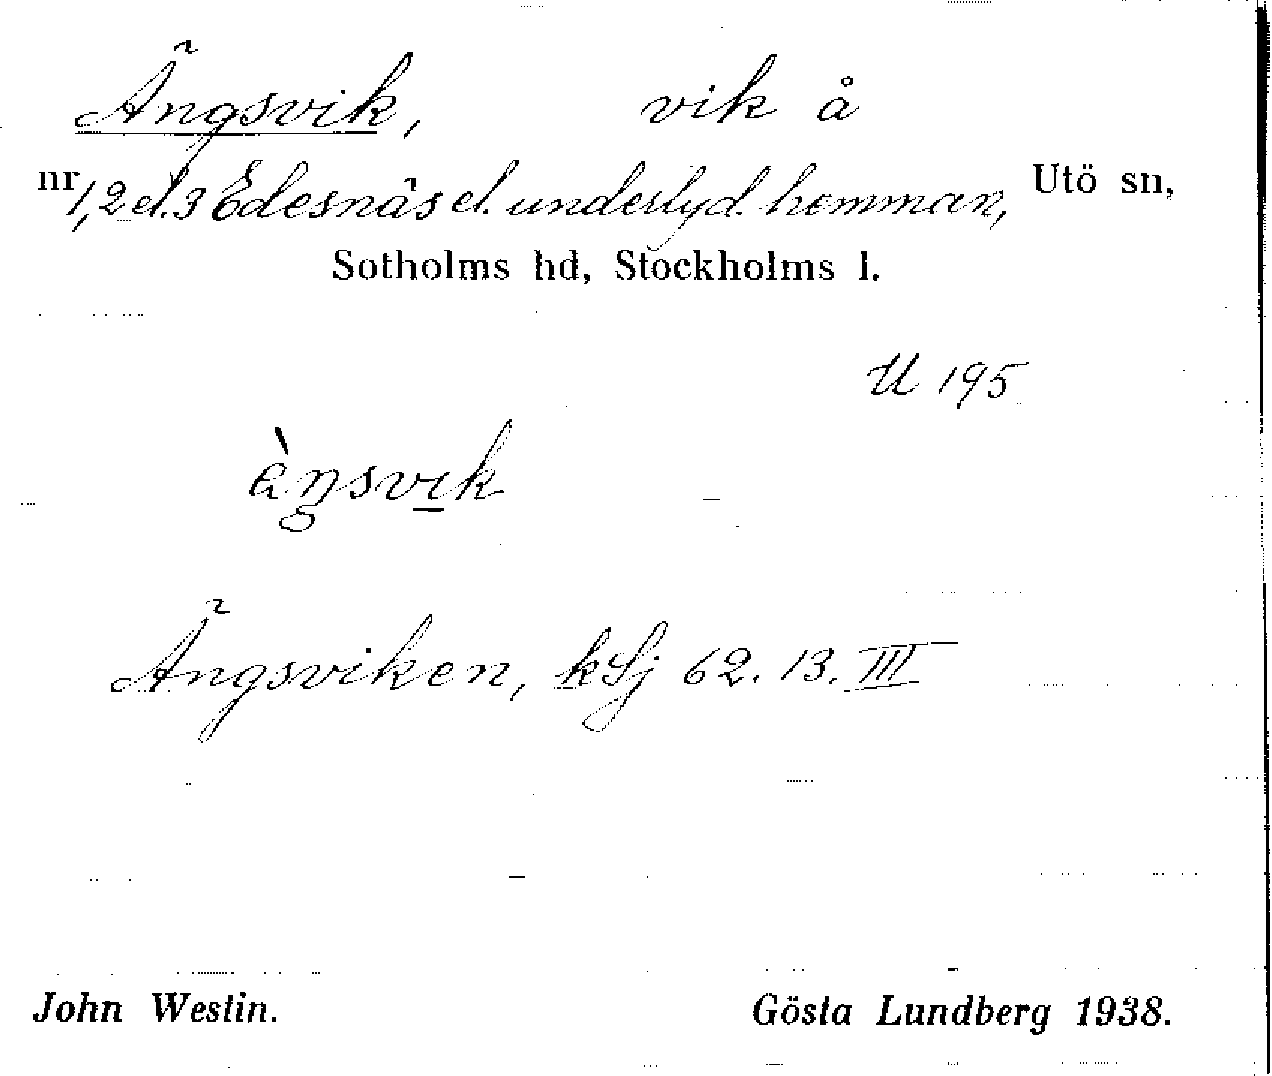 Ängsvik, vik å
nr 1, 2 el. 3 Edesnäs el. underlyd. hemman, Utö sn,
Sotholms hd, Stockholms l.
U 195
Ängsviken, kSj 62. 13. III
John Westin. Gösta Lundberg 1938.